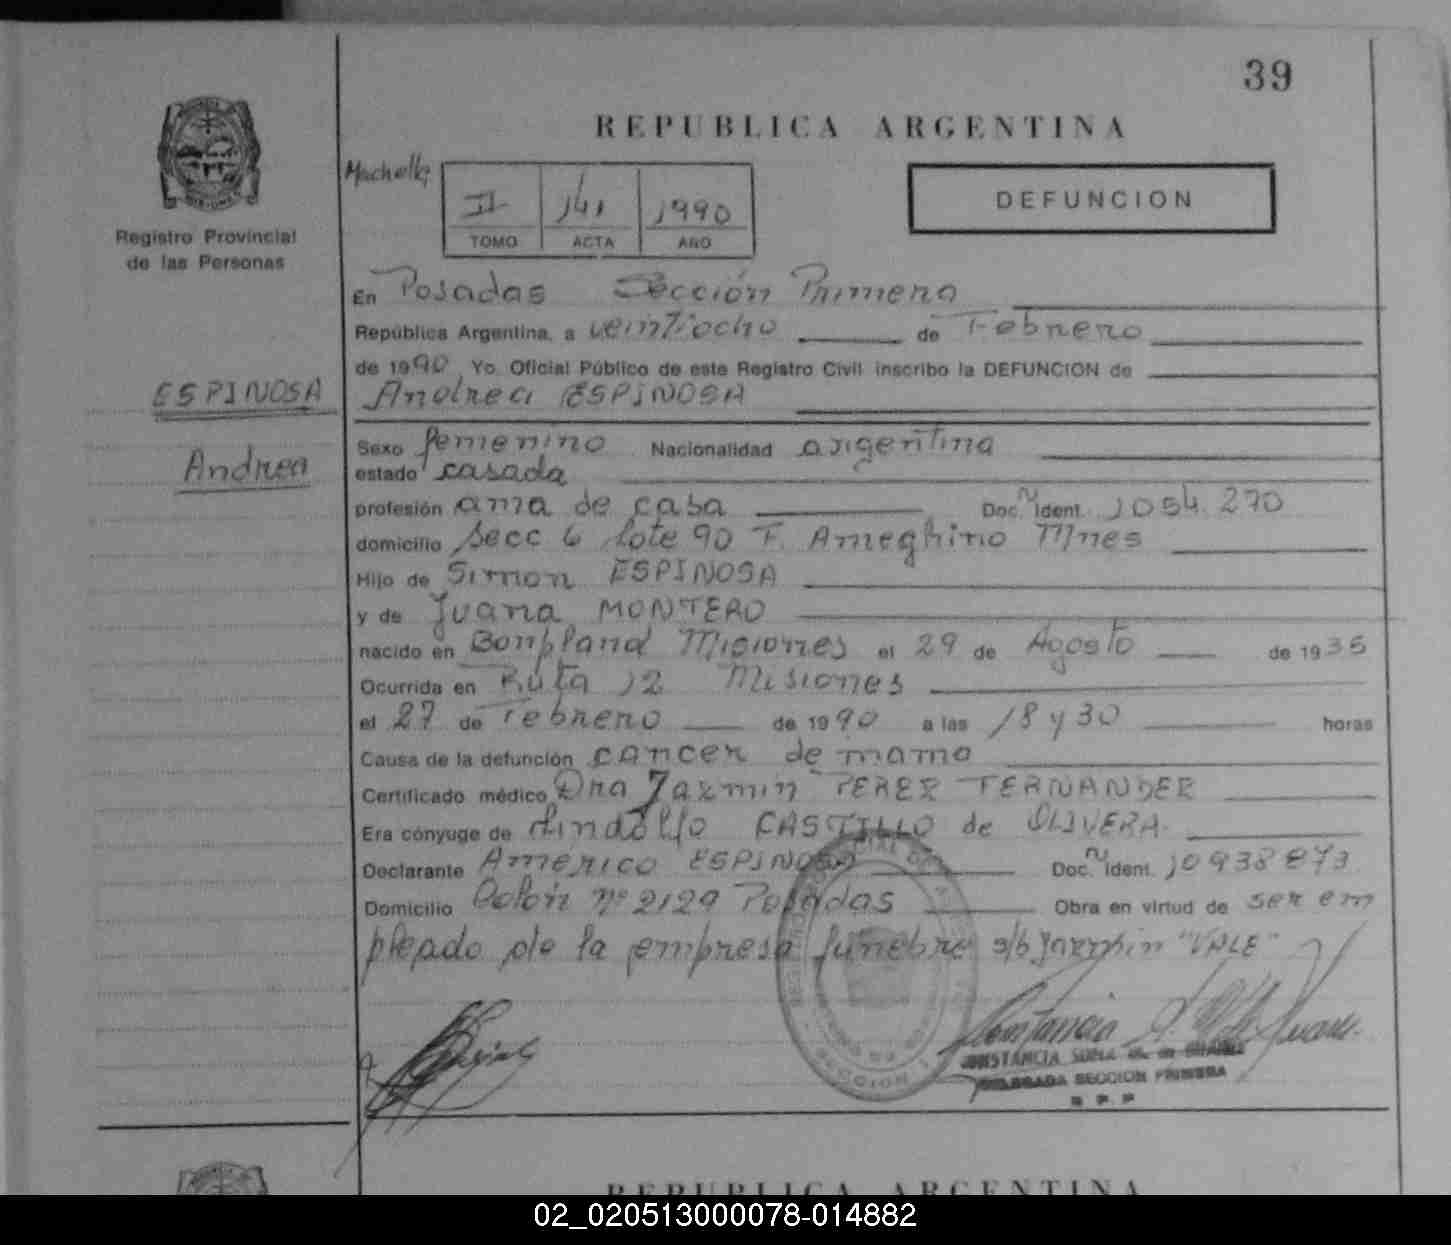 39
REPUBLICA ARGENTINA
DEFUNCION
II 141 1990
TOMO ACTA AÑO
Registro Provincial
de las Personas
En Posadas Sección Primera
República Argentina, a veintiocho de Febrero
de 1990 Yo, Oficial Público de este Registro Civil inscribo la DEFUNCION de
ESPINOSA
Andrea ESPINOSA
Andrea
Sexo femenino Nacionalidad argentina
estado casada
profesión ama de casa Doc. Ident. 1054.270
domicilio Secc 6 lote 90 F. Ameghino Mnes
Hijo de Simon ESPINOSA
y de Juana MONTERO
nacido en Bonpland Misiones el 29 de Agosto de 1935
Ocurrida en Ruta 12 Misiones
el 27 de Febrero de 1990 a las 18 y 30 horas
Causa de la defunción cancer de mama
Certificado médico Dra Jazmin PEREZ FERNANDEZ
Era cónyuge de Lindolfo CASTILLO de OLIVERA
Declarante Americo ESPINOSA Doc. Ident. 10938873
Domicilio Colón nº 2129 Posadas Obra en virtud de ser em
pleado de la empresa funebre s/b Jazmin "VALE"
DELEGADA SECCION PRIMERA
R P P
REPUBLICA ARGENTINA
02_020513000078-014882